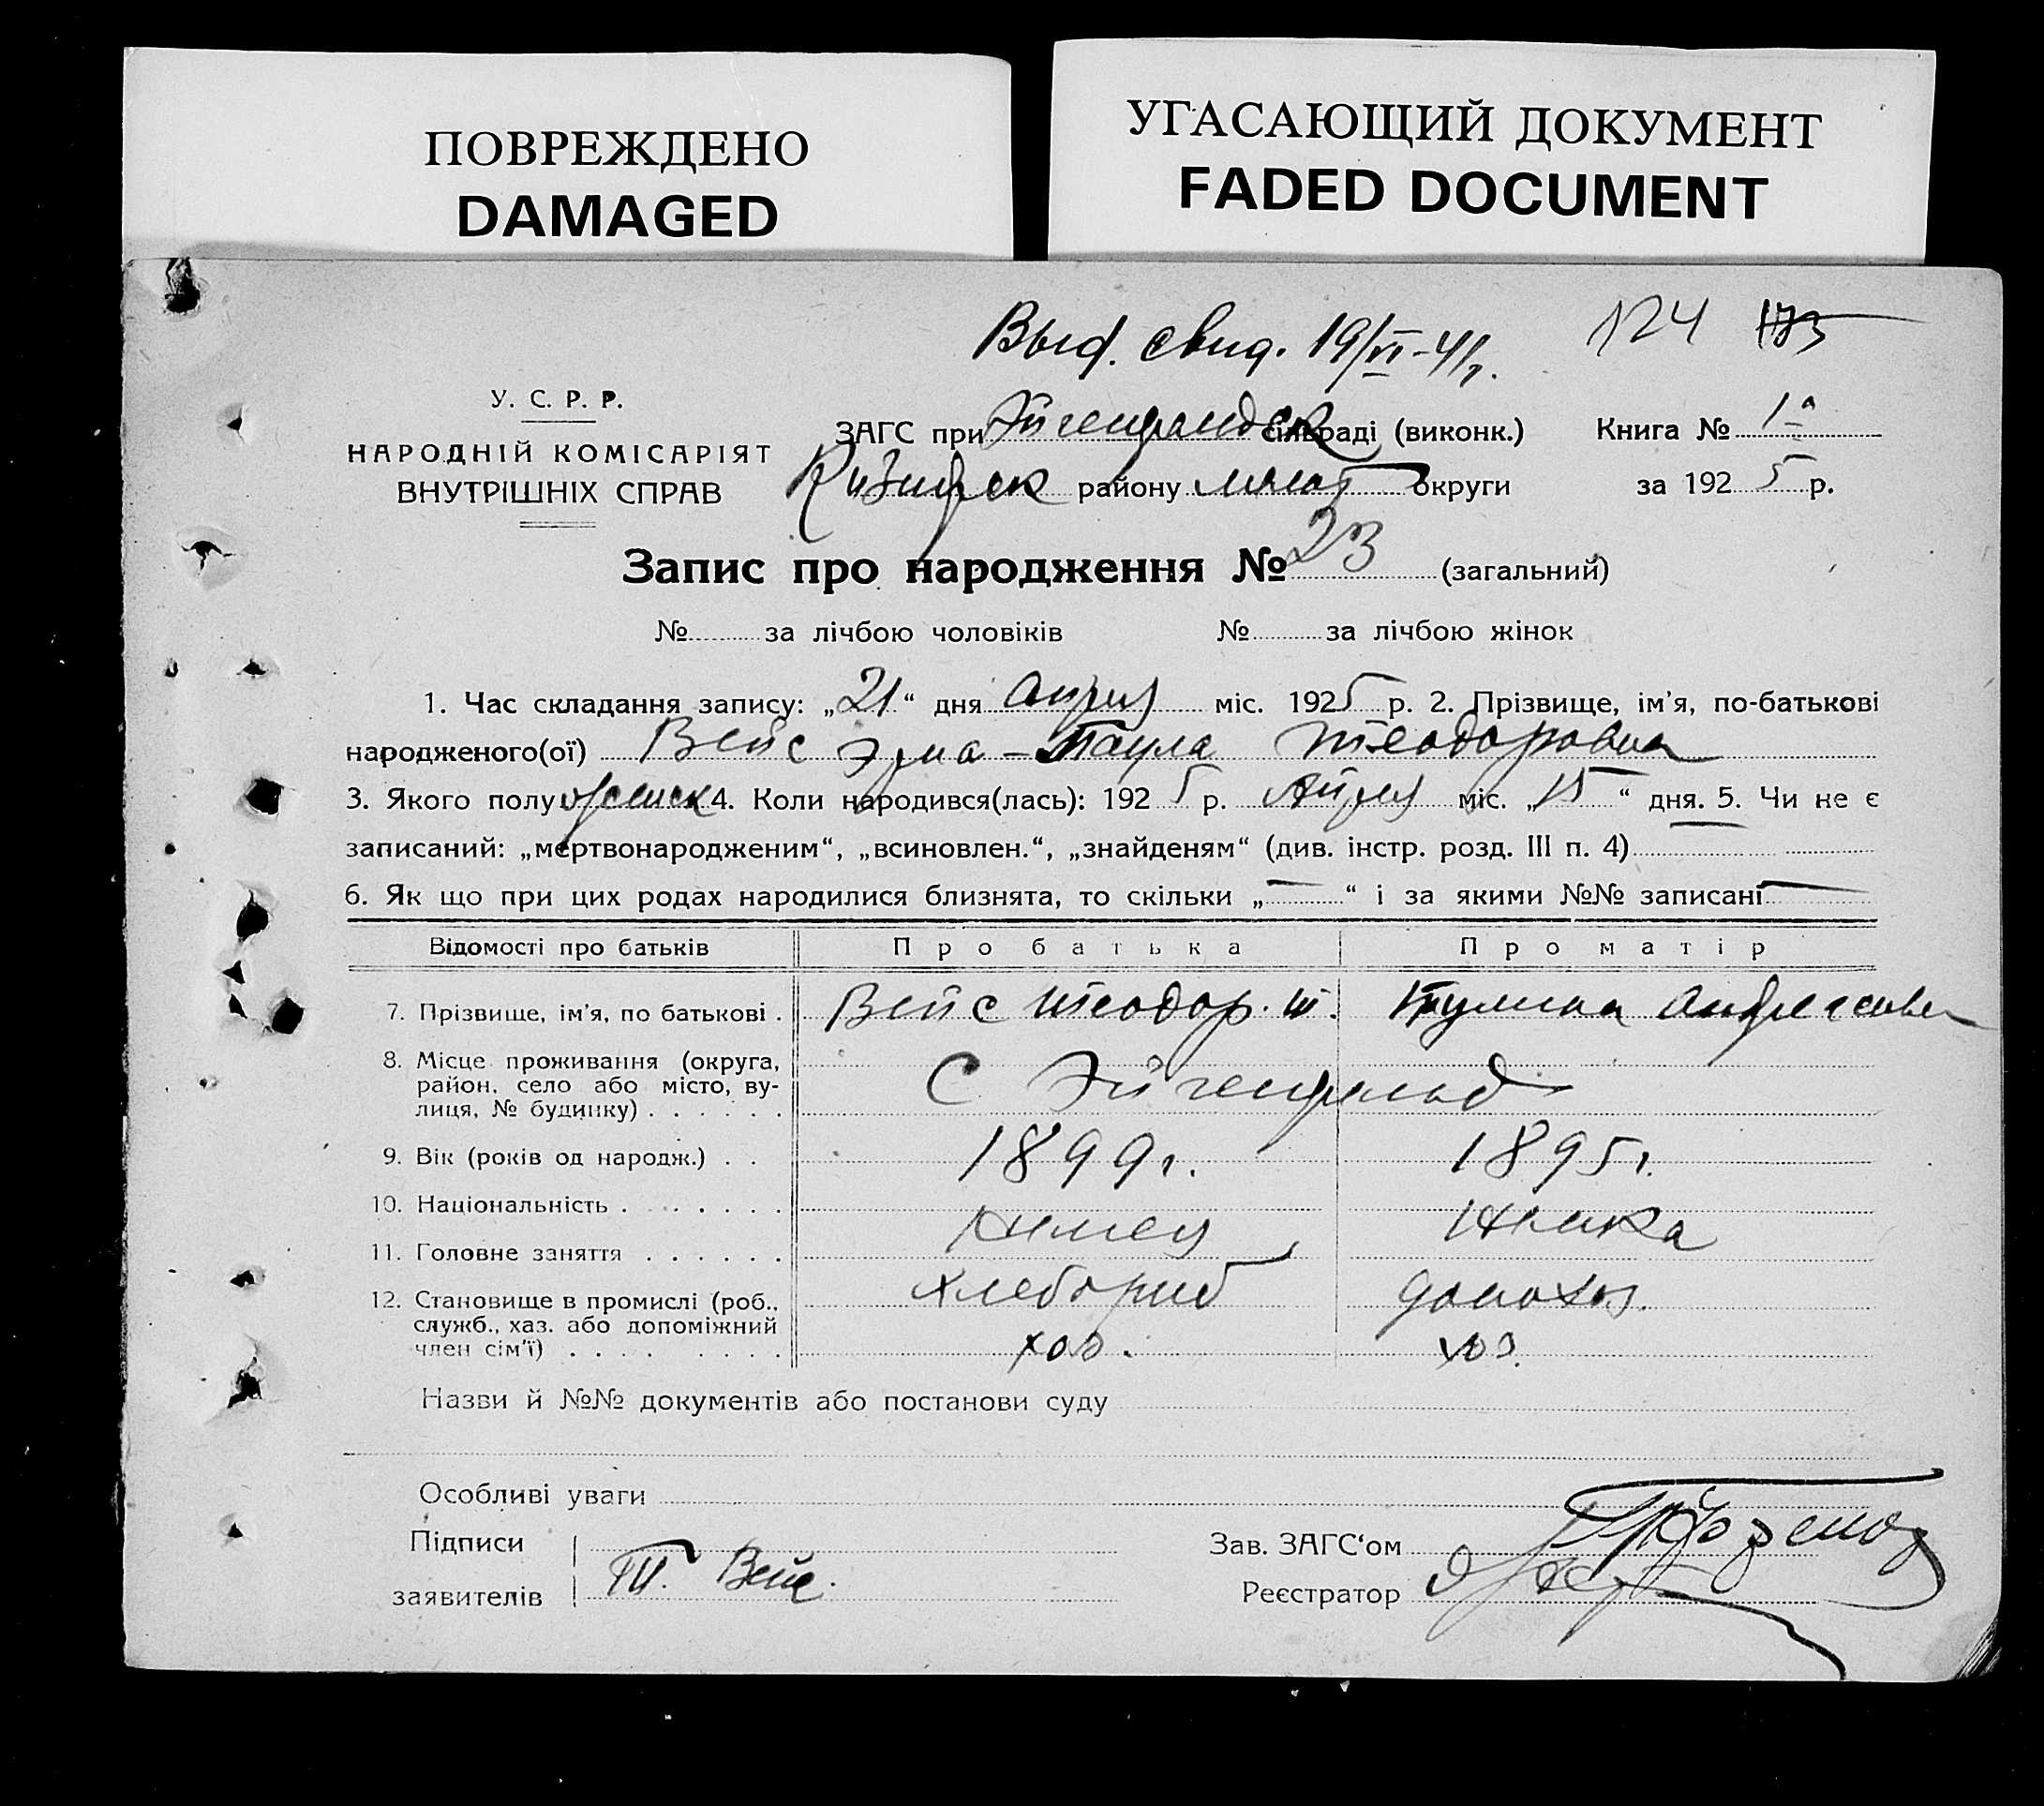 ПОВРЕЖДЕНО
DAMAGED
УГАСАЮЩИЙ ДОКУМЕНТ
FADED DOCUMENT
Выд. свид. 19/VI-41г. 124 173
У. С. Р. Р.
НАРОДНІЙ КОМІСАРІЯТ
ВНУТРІШНІХ СПРАВ
ЗАГС при сільраді (виконк.) Книга № 1а
району округи за 1925 р.
Запис про народження № 23 (загальний)
№ за лічбою чоловіків № за лічбою жінок
1. Час складання запису: „21“ дня апреля міс. 1925 р. 2. Прізвище, ім'я, по-батькові
народженого(ої) Вейс Эрма-Паула Теодоровна
3. Якого полу женск 4. Коли народився(лась): 1925 р. Апреля міс. „15“ дня. 5. Чи не є
записаний: „мертвонародженим“, „всиновлен.“, „знайденям“ (див. інстр. розд. III п. 4)
6. Як що при цих родах народилися близнята, то скільки „—“ і за якими №№ записані —
Відомості про батьків Про батька Про матір
7. Прізвище, ім'я, по батькові . Вейс Теодор. Андреевн
8. Місце проживання (округа,
район, село або місто, ву-
лиця, № будинку) . . . . . . С Эйгенфельд
9. Вік (років од народж.) . . 1899г. 1895г.
10. Національність . . . . . . . немец немка
11. Головне заняття . . . . . . хлебороб домохоз.
12. Становище в промислі (роб.,
служб., хаз. або допоміжний
член сім'ї) . . . . . . . . хоз. хоз.
Назви й №№ документів або постанови суду
Особливі уваги
Підписи
заявителів Т. Вейс.
Зав. ЗАГС'ом
Реєстратор